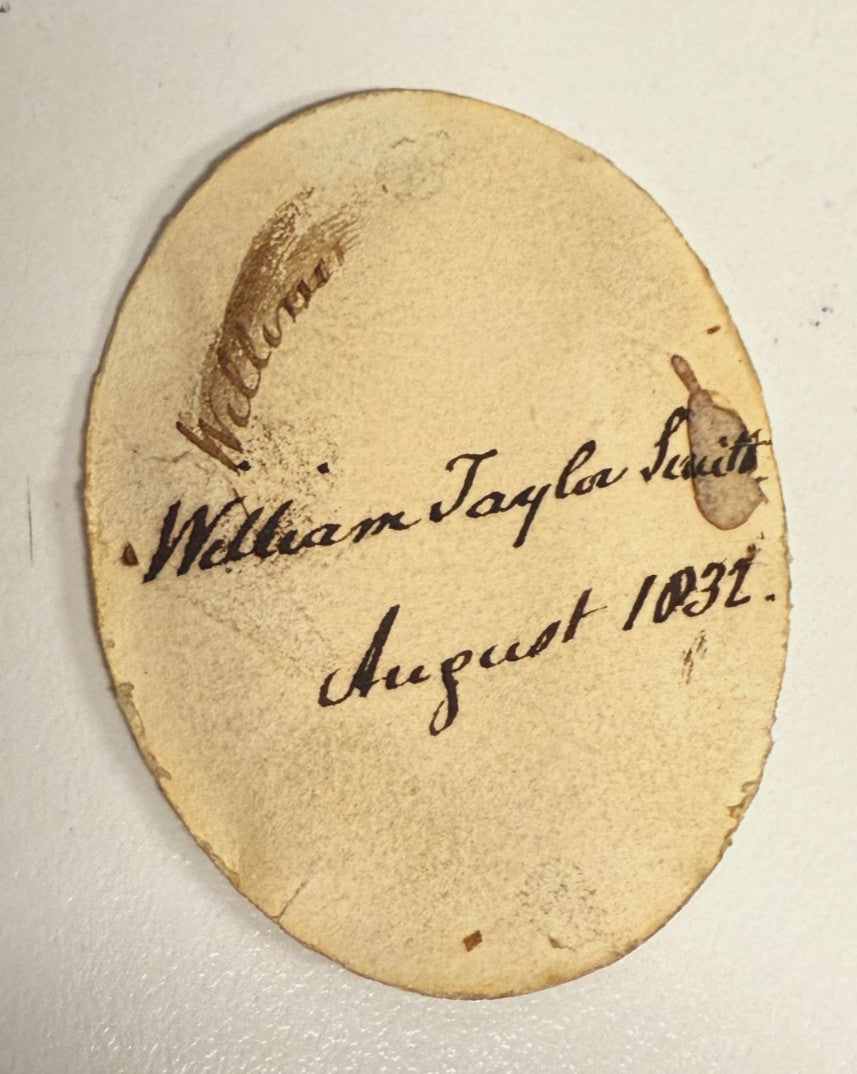 William
William Taylor Smith
August 1832.